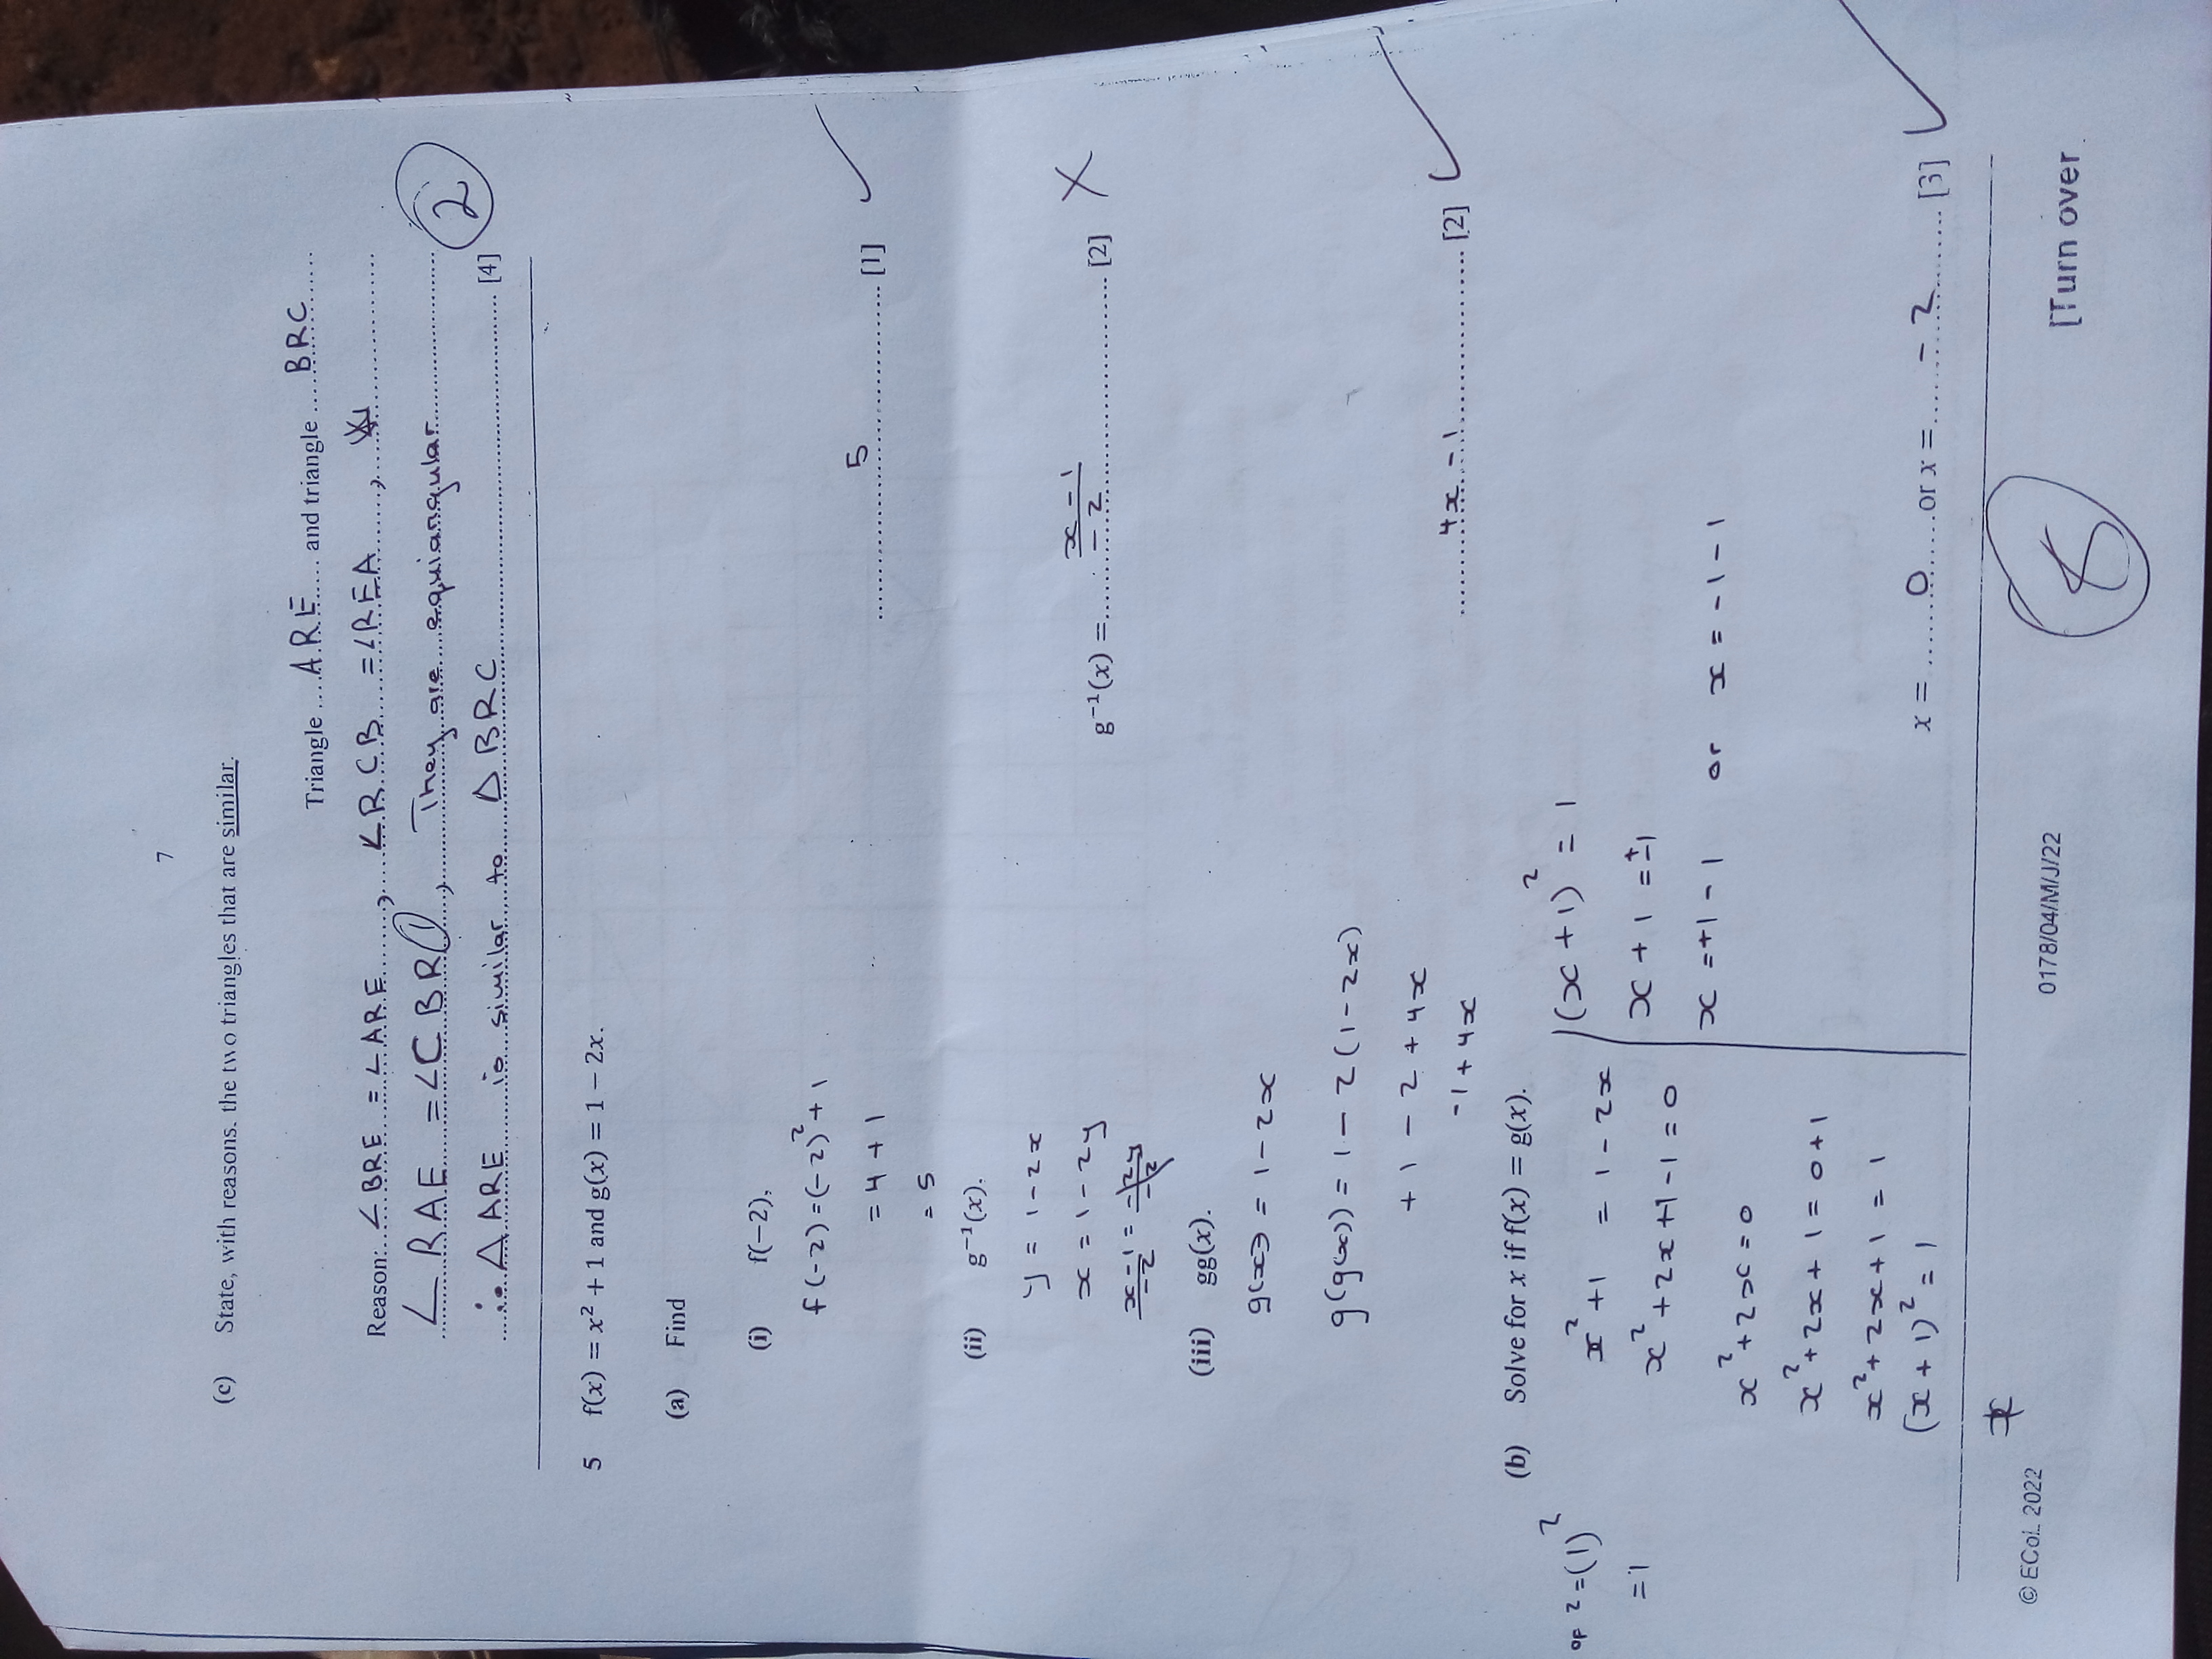 7
(c) State, with reasons, the two triangles that are similar.
Triangle ....A.R.E..... and triangle ....BRC......
Reason: ∠BRE = ∠ARE , ∠RCB = ∠REA ,
∠RAE = ∠CBR 1, They are equiangular
∴ △ARE is similar to △BRC [4]
2
5 f(x) = x² + 1 and g(x) = 1 − 2x.
(a) Find
(i) f(−2),
f(-2) = (-2)² + 1
= 4 + 1
5 [1] ✓
= 5
(ii) g⁻¹(x).
y = 1 - 2x
x = 1 - 2y
g⁻¹(x) = (x - 1)/-2 [2] X
(x - 1)/-2 = -2y/-2
(iii) gg(x).
g(x) = 1 - 2x
g(g(x)) = 1 - 2(1 - 2x)
+ 1 - 2 + 4x
-1 + 4x
4x - 1 [2] ✓
(b) Solve for x if f(x) = g(x).
of 2 = (1)²
= 1
x² + 1 = 1 - 2x
x² + 2x + 1 - 1 = 0
x² + 2x = 0
x² + 2x + 1 = 0 + 1
x² + 2x + 1 = 1
(x + 1)² = 1
(x + 1)² = 1
x + 1 = ±1
x = +1 - 1 or x = -1 - 1
x = 0 or x = -2 [3] ✓
© ECoL 2022
0178/04/M/J/22
[Turn over